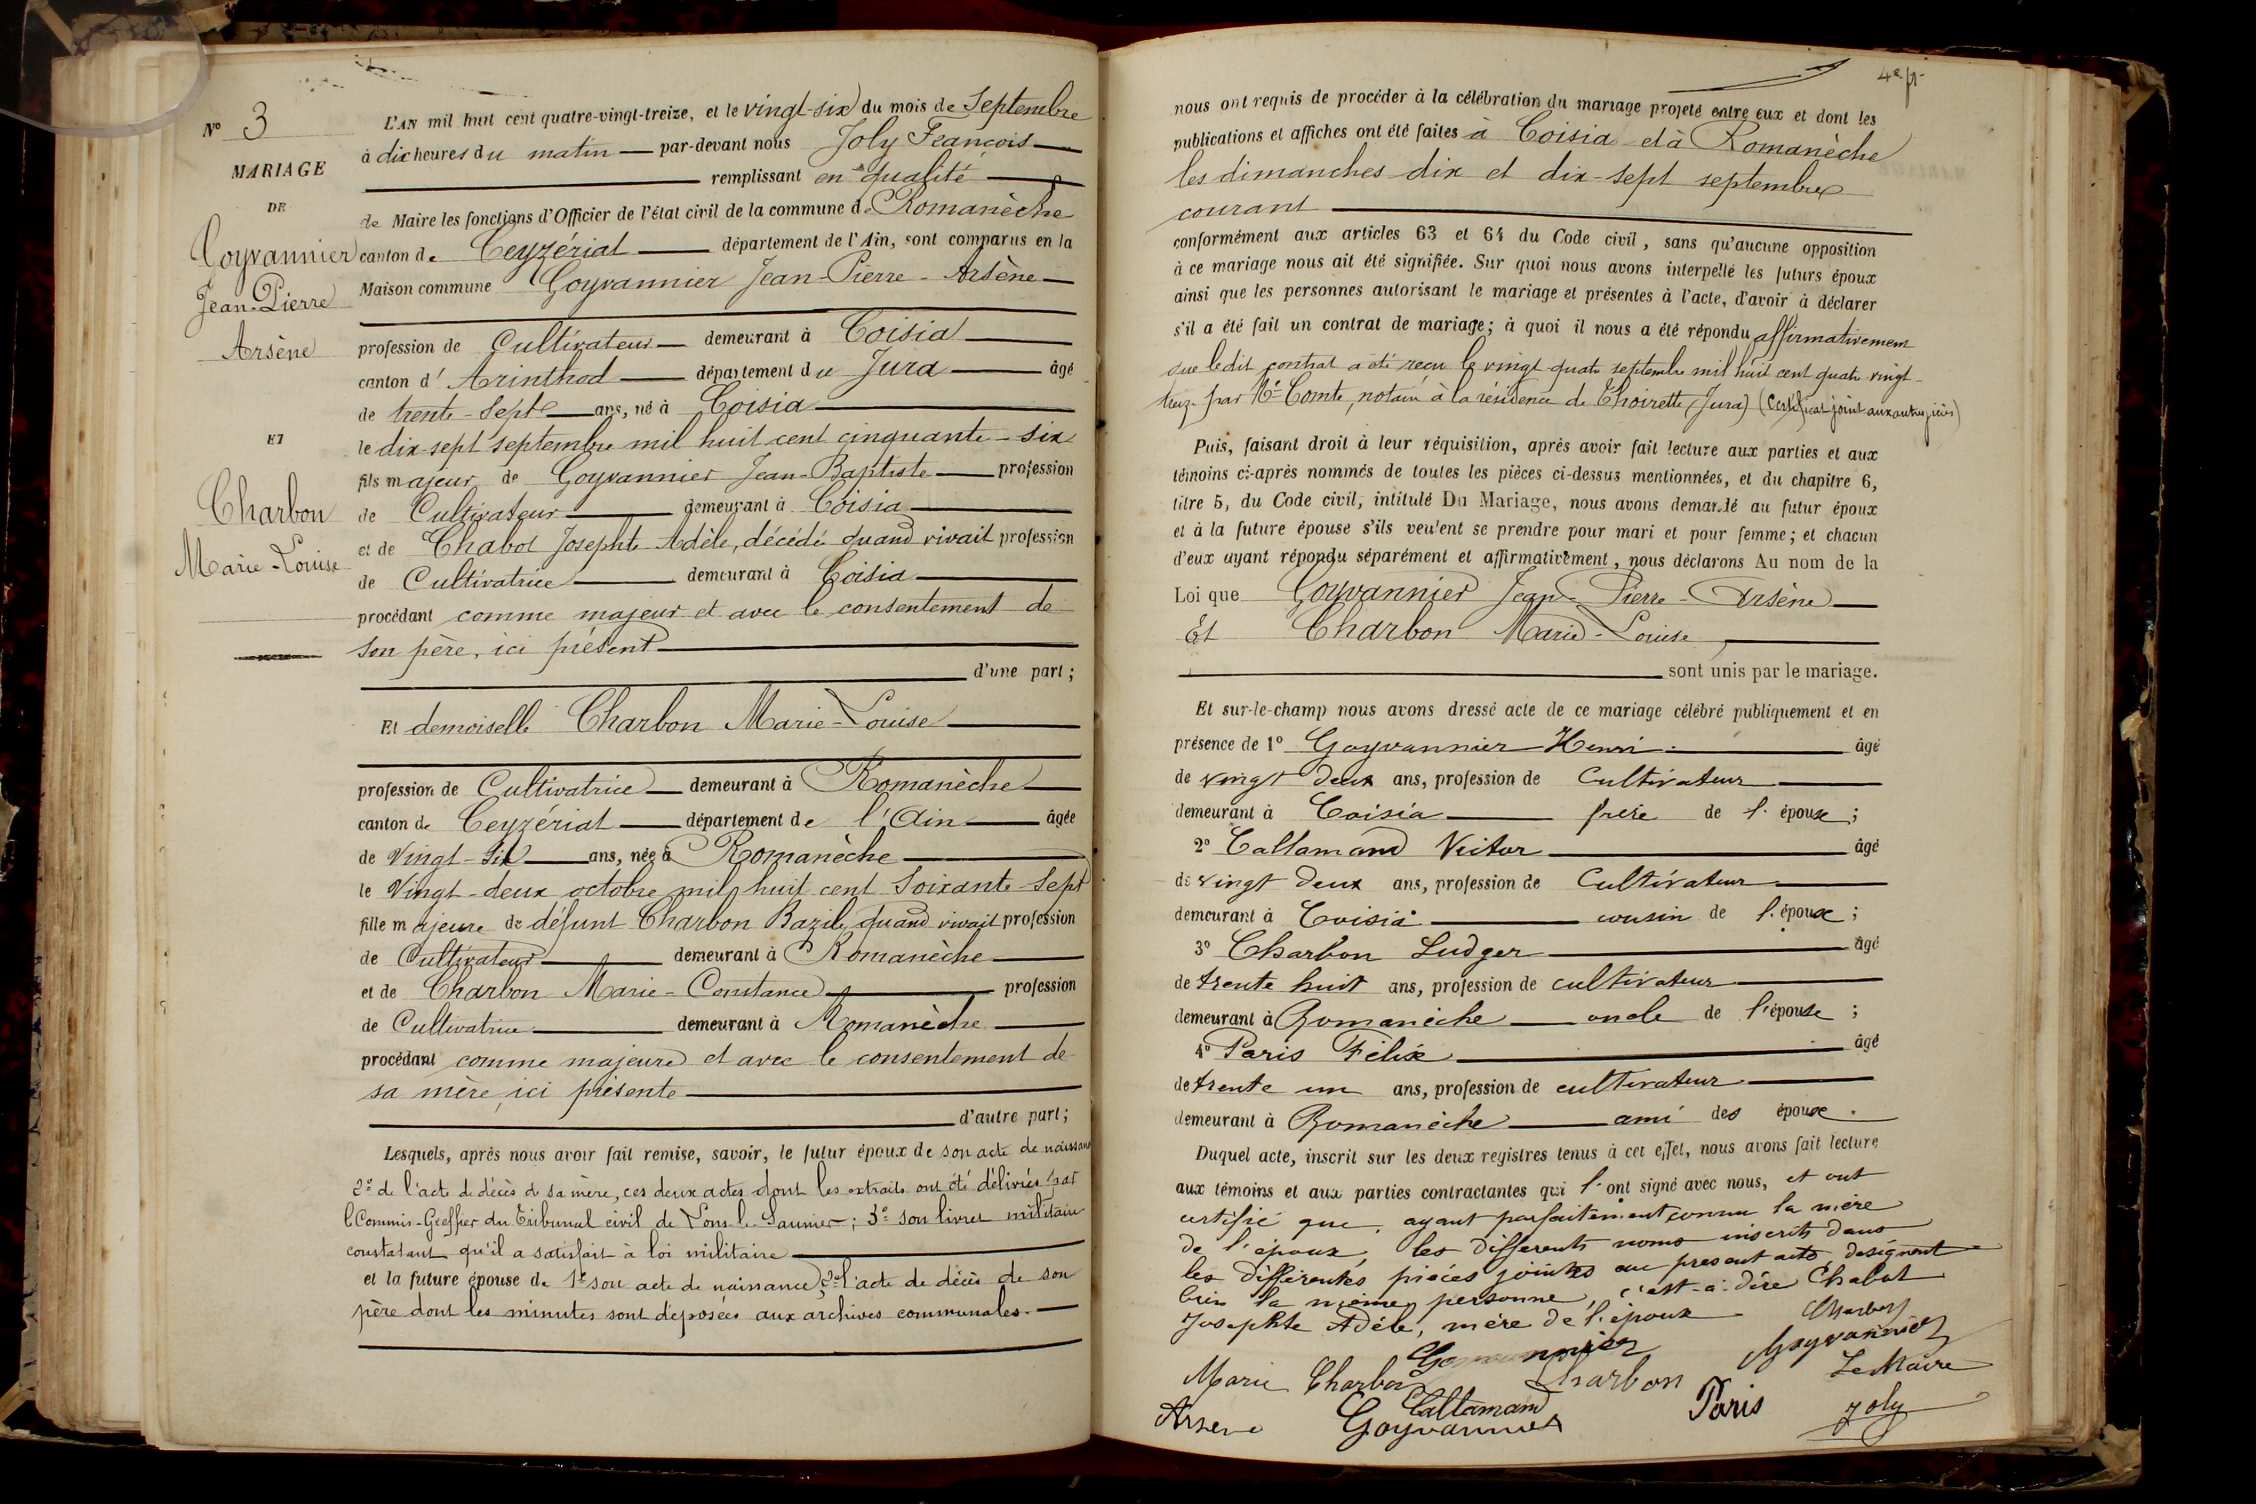 N° 3
MARIAGE
DE
Goyvannier
Jean-Pierre
Arsène
ET
Charbon
Marie-Louise
L'AN mil huit cent quatre-vingt-treize, et le vingt-six du mois de Septembre
à dix heures du matin par-devant nous Joly François
remplissant en qualité
de Maire les fonctions d'Officier de l'état civil de la commune de Romanèche
canton de Ceyzériat département de l'Ain, sont comparus en la
Maison commune Goyvannier Jean-Pierre-Arsène
profession de Cultivateur demeurant à Coisia
canton d' Arinthod département du Jura âgé
de trente-sept ans, né à Coisia
le dix-sept septembre mil huit cent cinquante-six
fils majeur de Goyvannier Jean-Baptiste profession
de Cultivateur demeurant à Coisia
et de Chabot Josephte Adèle, décédée quand vivait profession
de Cultivatrice demeurant à Coisia
procédant comme majeur et avec le consentement de
son père, ici présent
d'une part;
Et demoiselle Charbon Marie-Louise
profession de Cultivatrice demeurant à Romanèche
canton de Ceyzériat département de l'Ain âgée
de Vingt-six ans, née à Romanèche
le Vingt-deux octobre mil huit cent soixante-sept
fille majeure de défunt Charbon Bazile, quand vivait profession
de Cultivateur demeurant à Romanèche
et de Charbon Marie-Constance profession
de Cultivatrice demeurant à Romanèche
procédant comme majeure et avec le consentement de
sa mère, ici présente
d'autre part;
Lesquels, après nous avoir fait remise, savoir, le futur époux de son acte de naissance
2° de l'acte de décès de sa mère, ces deux actes dont les extraits ont été délivrés par
le Commis-Greffier du Tribunal civil de Lons-le-Saunier; 3° son livret militaire
constatant qu'il a satisfait à loi militaire
et la future épouse de 1° son acte de naissance, 2° l'acte de décès de son
père dont les minutes sont déposées aux archives communales.
nous ont requis de procéder à la célébration du mariage projeté entre eux et dont les
publications et affiches ont été faites à Coisia et à Romanèche
les dimanches dix et dix-sept septembre
courant
conformément aux articles 63 et 64 du Code civil, sans qu'aucune opposition
à ce mariage nous ait été signifiée. Sur quoi nous avons interpellé les futurs époux
ainsi que les personnes autorisant le mariage et présentes à l'acte, d'avoir à déclarer
s'il a été fait un contrat de mariage; à quoi il nous a été répondu affirmativement
que ledit contrat a été reçu le vingt-quatre septembre mil huit cent quatre vingt-
treize par Me Comte, notaire à la résidence de Thoirette (Jura) (Certificat joint aux autres pièces)
Puis, faisant droit à leur réquisition, après avoir fait lecture aux parties et aux
témoins ci-après nommés de toutes les pièces ci-dessus mentionnées, et du chapitre 6,
titre 5, du Code civil, intitulé Du Mariage, nous avons demandé au futur époux
et à la future épouse s'ils veulent se prendre pour mari et pour femme; et chacun
d'eux ayant répondu séparément et affirmativement, nous déclarons Au nom de la
Loi que Goyvannier Jean-Pierre-Arsène
Et Charbon Marie-Louise
sont unis par le mariage.
Et sur-le-champ nous avons dressé acte de ce mariage célébré publiquement et en
présence de 1° Goyvannier Henri âgé
de vingt deux ans, profession de Cultivateur
demeurant à Coisia frère de l'époux;
2° Callamand Victor âgé
de vingt deux ans, profession de Cultivateur
demeurant à Coisia cousin de l'époux;
3° Charbon Ludger âgé
de trente huit ans, profession de cultivateur
demeurant à Romanèche oncle de l'épouse;
4° Paris Félix âgé
de trente un ans, profession de cultivateur
demeurant à Romanèche ami des époux.
Duquel acte, inscrit sur les deux registres tenus à cet effet, nous avons fait lecture
aux témoins et aux parties contractantes qui l'ont signé avec nous, et ont
certifié que, ayant parfaitement connu la mère
de l'époux, les différents noms inscrits dans
les différentes pièces jointes au présent acte, désignent
bien la même personne, c'est-à-dire Chabot
Josephte Adèle, mère de l'époux
Charbon
Goyvannier
Goyvannier
Marie Charbon
Charbon
Le Maire
Callamand
Paris
Joly
Arsene Goyvannier